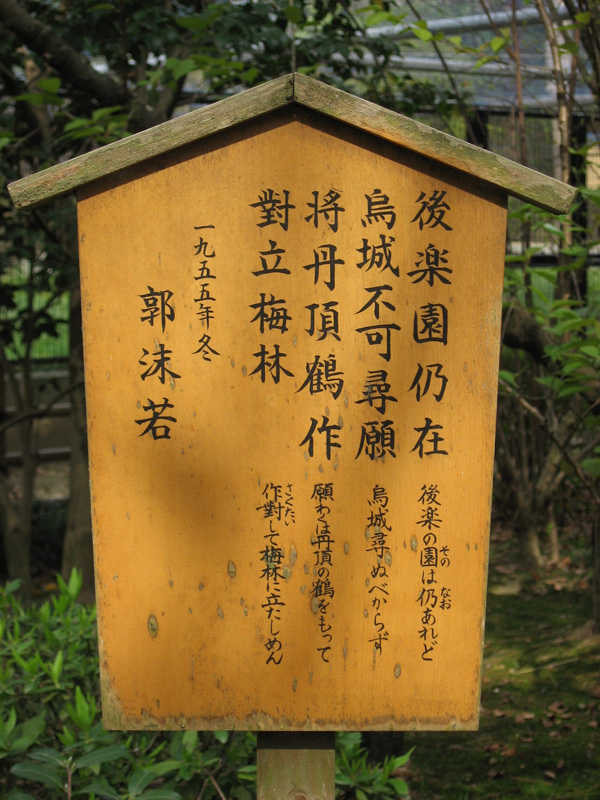 後楽園仍在
烏城不可尋願
将丹頂鶴作
對立梅林
一九五五年冬
郭沫若
後楽の園は仍あれど
その
なお
烏城尋ぬべからず
願わくは丹頂の鶴をもって
作對して梅林に立たしめん
さくたい